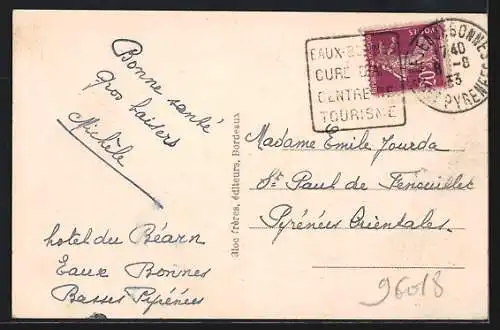 Bonne santé
Gros baisers
Michèle
hotel du Béarn
Eaux Bonnes
Basses Pyrénées
Aloc frères, éditeurs, Bordeaux
EAUX-BONNES
CURE
CENTRE DE
TOURISME
POSTES
20c
BONNES
7 40
-8
33
PYRENEES
Madame Emile Jourda
St Paul de Fenouillet
Pyrénées Orientales.
96018